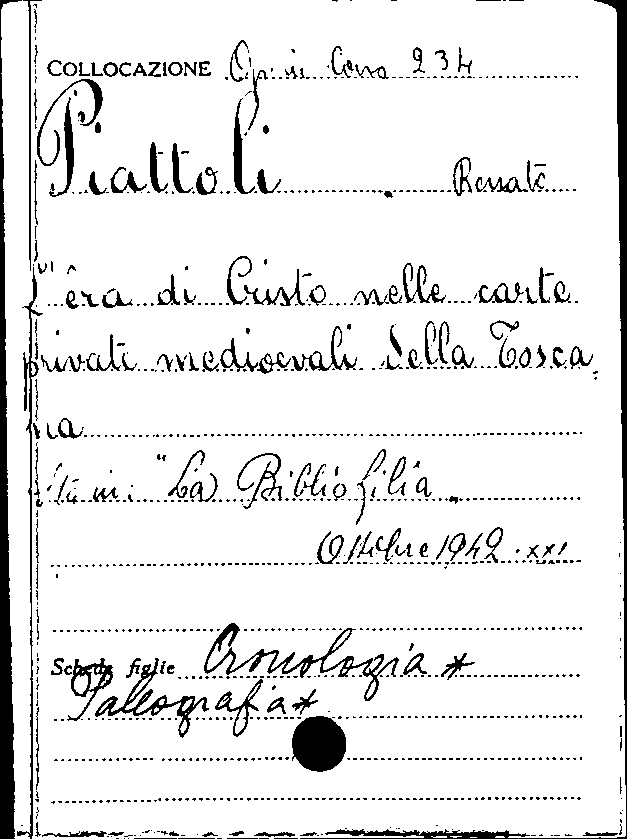 COLLOCAZIONE 234
Piattoli . Renato
L'êra di Cristo nelle carte
private medioevali della Tosca=
na
in: "La Bibliofilia„
Ottobre 1942 · XXI
Schede figlie Cronologia *
Paleografia *